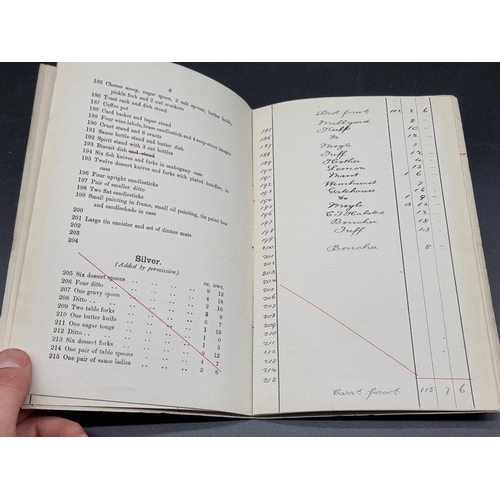 6
185 Cheese scoop, sugar spoon, 2 salt spoons, butter knife,
pickle fork and 2 nut crackers
186 Toast rack and dish stand
187 Coffee pot
188 Card basket and taper stand
189 Four wine labels, brass candlestick and 4 soup
190 Cruet stand and 6 cruets
191 Sauce bottle stand and butter dish
192 Spirit stand with 3 bottles
193 Biscuit dish and stand
194 Six fish knives and forks in mahogany case
195 Twelve dessert knives and forks with plated candles, in
case
196 Four upright candlesticks
197 Pair of smaller ditto
198 Two flat candlesticks
199 Small painting in frame, small oil painting, tin paint box
and candleshade in case
200
201 Large tin canister and set of dinner mats
203
204
Silver.
(Added by permission).
oz. dwt.
205 Six dessert spoons .. .. .. 9 12
206 Four ditto .. .. .. 4 18
207 One gravy spoon .. .. .. 4 16
208 Ditto .. .. .. .. 3
209 Two table forks .. .. .. 6 7
210 One butter knife .. .. .. 1 19
211 One sugar tongs .. .. .. 1 0
212 Ditto .. .. .. .. 1 5
213 Six dessert forks .. .. .. 9 12
214 One pair of table spoons .. .. 4 7
215 One pair of sauce ladles .. .. 2 6
Bot forwd 102 2 6
185 Millyard 8
186 Tuff 10
187 Do 12
188 Moyle 5
189 Tuff 12
190 4
191 Lemon 13
192 1 6
193 7
194 Gatehouse 16
195 Do 1 9
196 Moyle 3 12
197 12
198 Boucher 18
199 Tuff 13
200 Boucher 5
201
202
203
204
205
206
207
208
209
210
211
212
213
214
215
Carrd forwd 115 7 6